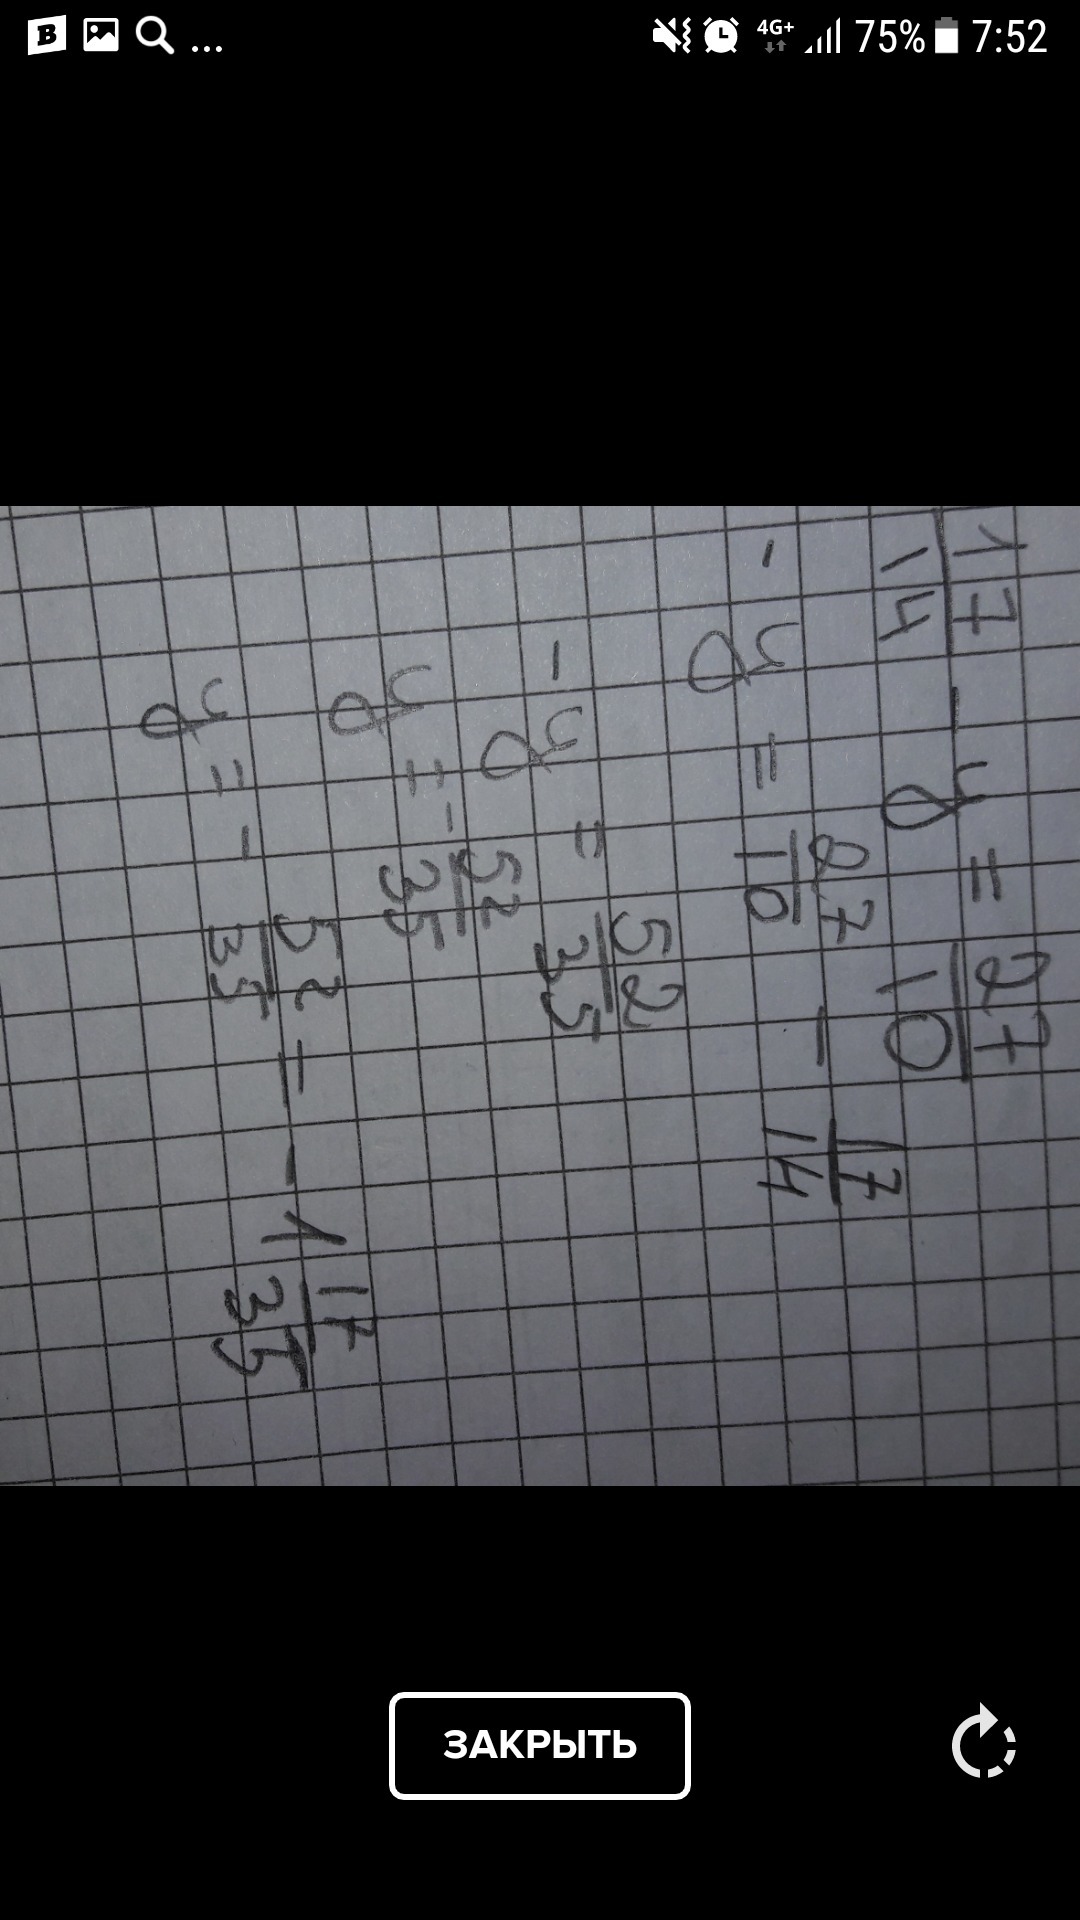 B ... 4G+ 75% 7:52
17/14 - y = 27/10
- y = 27/10 - 17/14
- y = 52/35
y = - 52/35
y = - 52/35 = - 1 17/35
ЗАКРЫТЬ